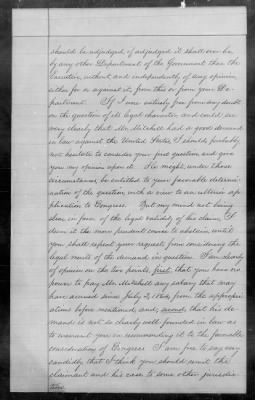 should be adjudged if adjudged it shall ever be
by any other Department of the Government than the
Executive, without and independently of any opinion,
either for or against it, from this or from your De-
partment. If I were entirely free from any doubt
on the question of its legal character and could see
very clearly that Mr Mitchell had a good demand
in law against the United States, I should probably
not hesitate to consider your first question and give
you my opinion upon it. He might, under those
circumstances, be entitled to your favorable determi-
nation of the question with a view to an ulterior ap-
plication to Congress. But my mind not being
clear in favor of the legal validity of his claim, I
deem it the more prudent course to abstain until
you shall repeat your request, from considering the
legal merits of the demand in question. I am clearly
of opinion on the two points, first, that you have no
power to pay Mr Mitchell any salary that may
have accrued since July 2, 1864 from the appropri-
ations before mentioned, and, second, that his de-
mand is not so clearly well founded in law as
to warrant you in recommending it to the favorable
consideration of Congress. I am free to say very
candidly that I think you should remit the
claimant and his case to some other jurisdic-
tion.